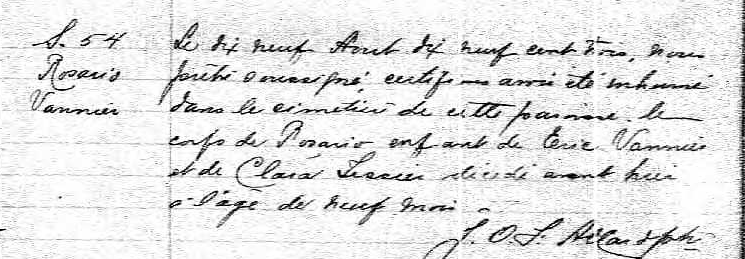 S. 54
Rosario
Vannier
Le dix neuf Aout dix neuf cent trois, nous
prêtre soussigné, certifions avoir été inhumé
dans le cimetière de cette paroisse le
corps de Rosario enfant de Eric Vannier
et de Clara Tessier décédé avant hier
à l'age de neuf mois.
J. O. S. ptr